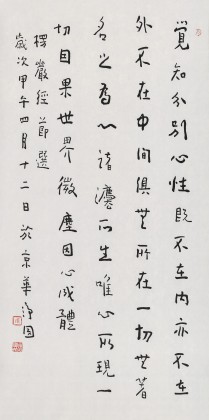 覺知分別心性既不在內亦不在
外不在中間俱無所在一切無著
名之為心諸法所生唯心所現一
切因果世界微塵因心成體
楞嚴經節選
歲次甲午四月十二日於京華淨園